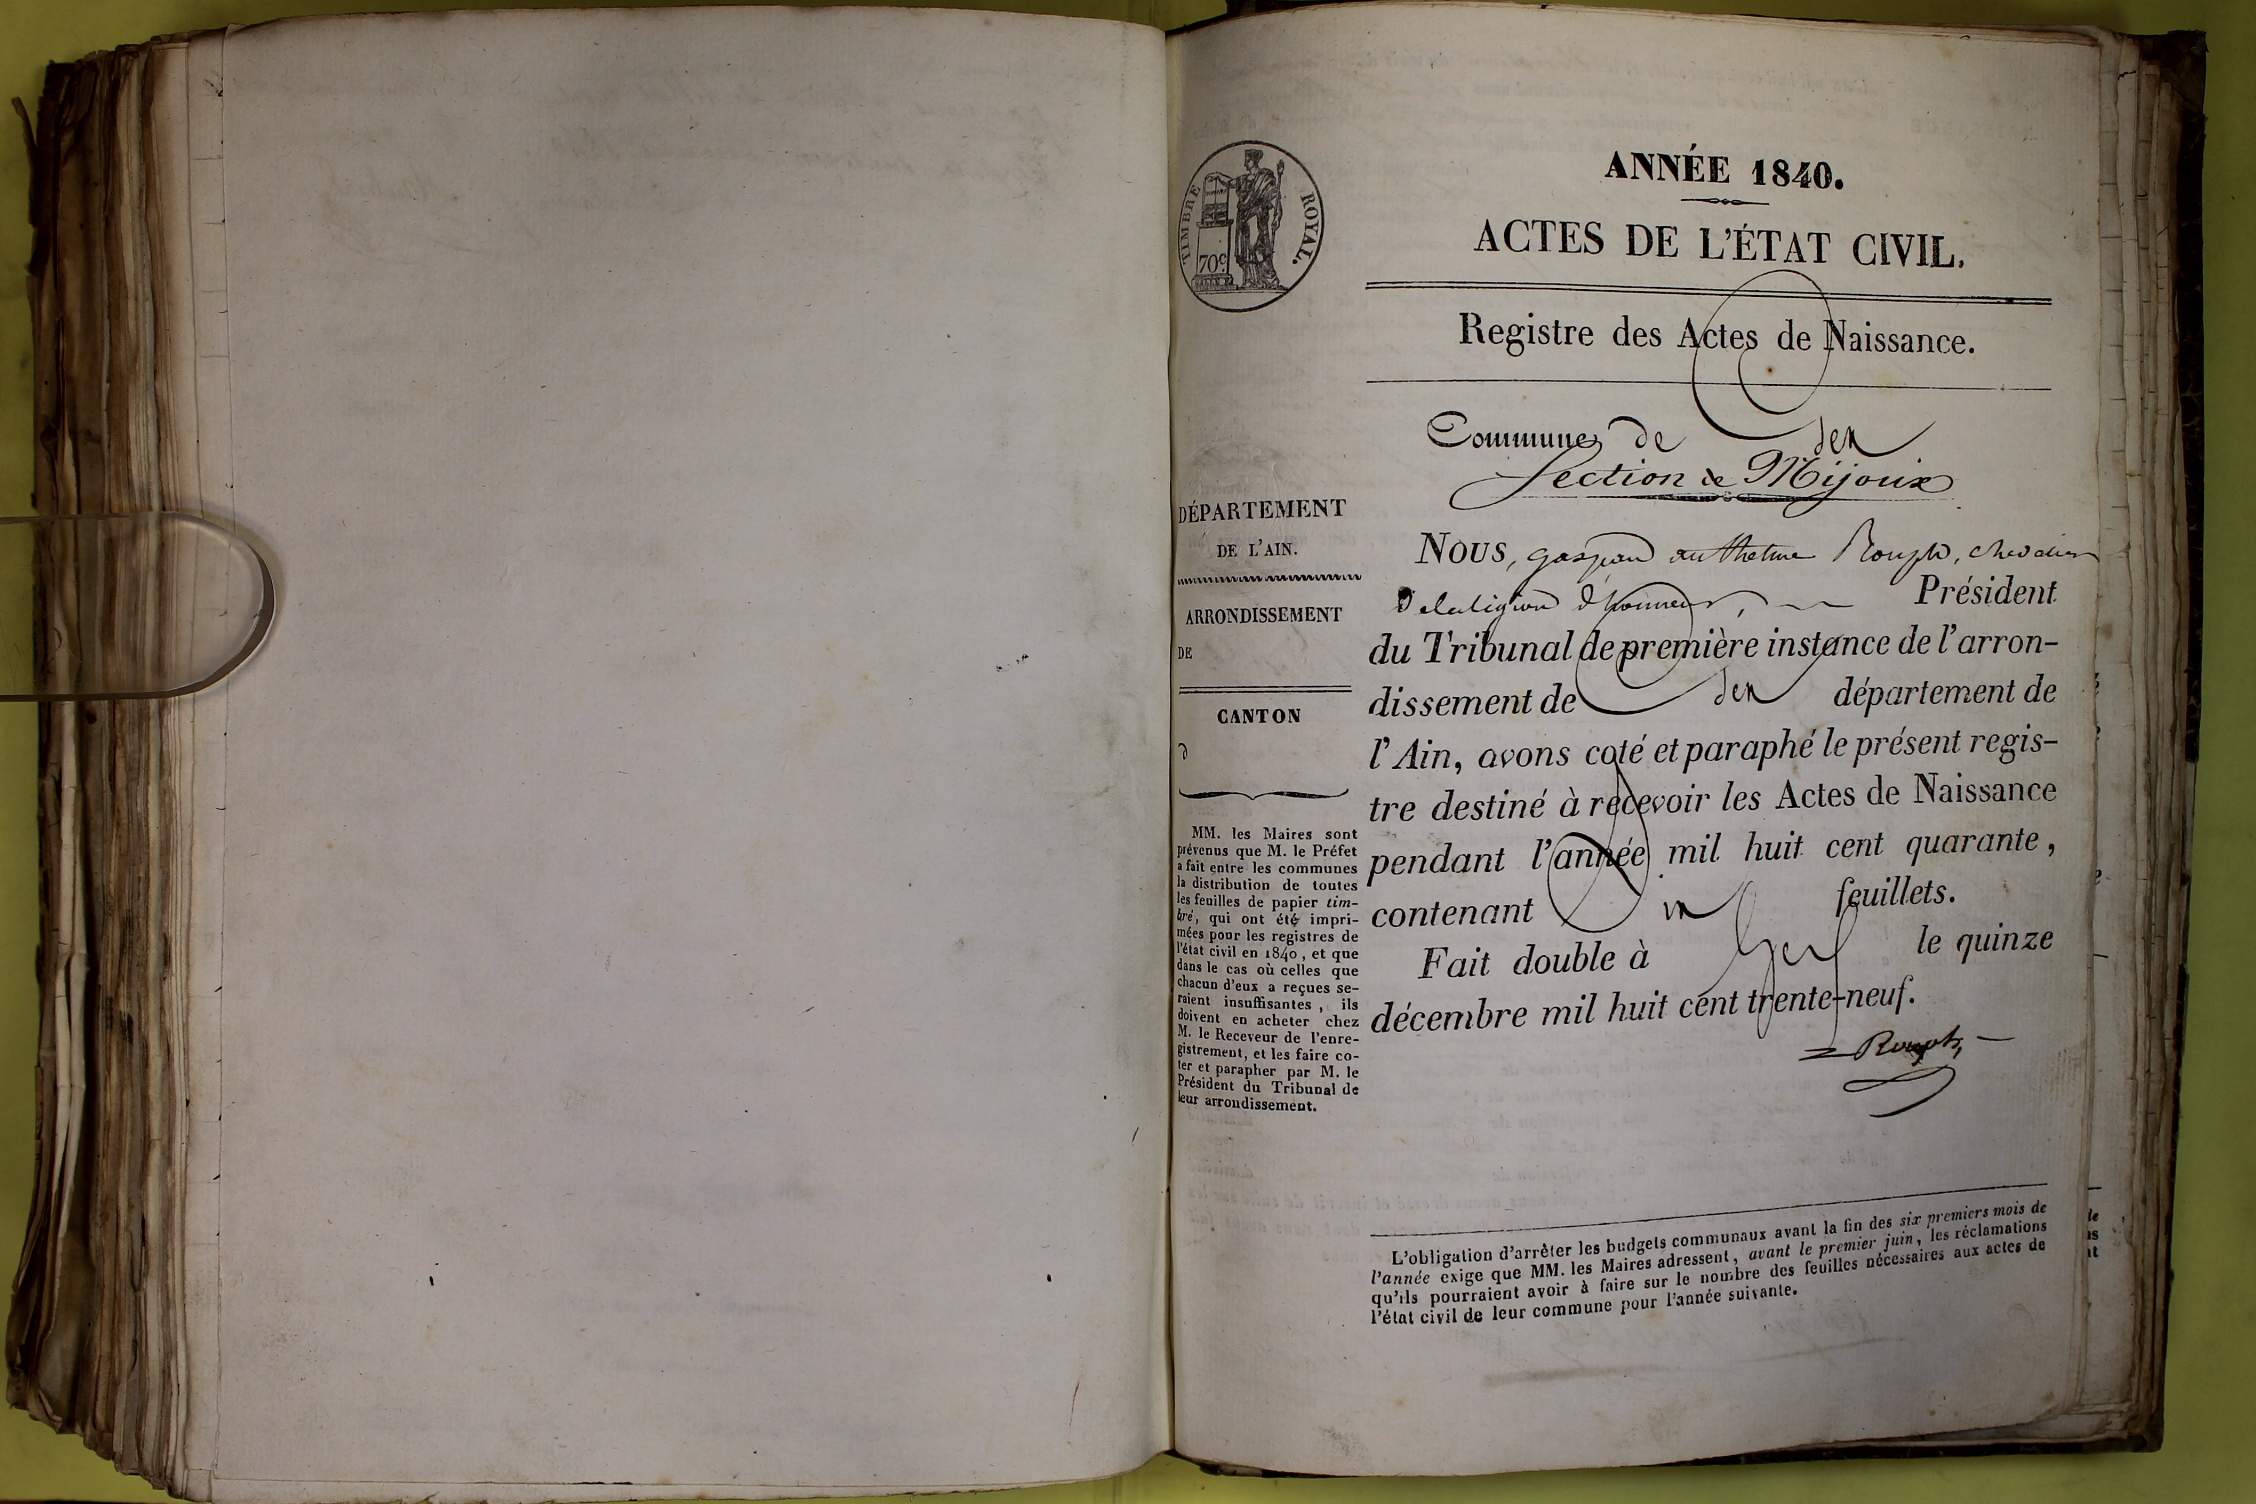 TIMBRE ROYAL.
70c
ANNÉE 1840.
ACTES DE L'ÉTAT CIVIL.
Registre des Actes de Naissance.
Commune de Gex
Section de Mijoux
DÉPARTEMENT
DE L'AIN.
ARRONDISSEMENT
DE
CANTON
D
MM. les Maires sont
prévenus que M. le Préfet
a fait entre les communes
la distribution de toutes
les feuilles de papier tim-
bré, qui ont été impri-
mées pour les registres de
l'état civil en 1840, et que
dans le cas où celles que
chacun d'eux a reçues se-
raient insuffisantes, ils
doivent en acheter chez
M. le Receveur de l'enre-
gistrement, et les faire co-
ter et parapher par M. le
Président du Tribunal de
leur arrondissement.
NOUS, gaspard anthelme Rouph, chevalier
de la légion d'honneur, Président
du Tribunal de première instance de l'arron-
dissement de Gex département de
l'Ain, avons coté et paraphé le présent regis-
tre destiné à recevoir les Actes de Naissance
pendant l'année mil huit cent quarante,
contenant feuillets.
Fait double à Gex le quinze
décembre mil huit cent trente-neuf.
Rouph
L'obligation d'arrêter les budgets communaux avant la fin des six premiers mois de
l'année exige que MM. les Maires adressent, avant le premier juin, les réclamations
qu'ils pourraient avoir à faire sur le nombre des feuilles nécessaires aux actes de
l'état civil de leur commune pour l'année suivante.